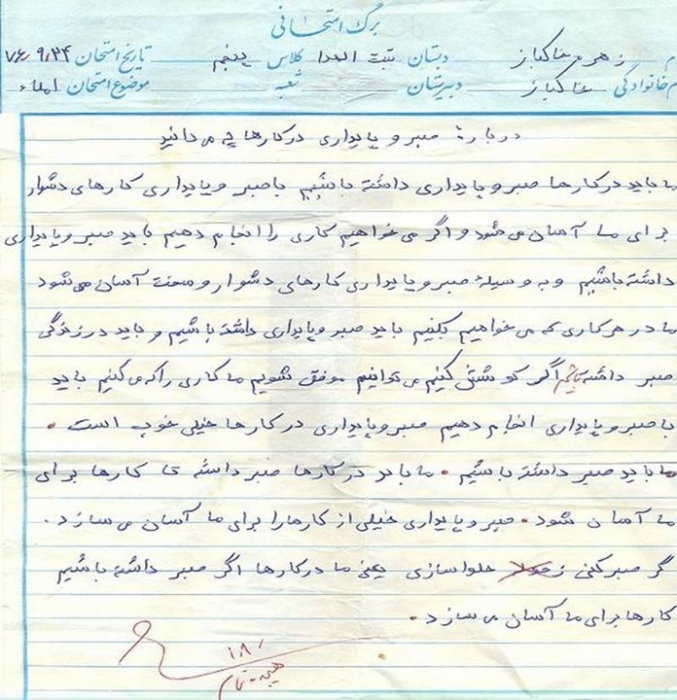 برگ امتحانی
م زهره خاکباز دبستان ثبت الهدا کلاس پنجم تاریخ امتحان ۷۶٫۹٫۲۴
م خانوادگی خاکباز دبیرستان شعبه موضوع امتحان املاء
درباره صبر و پایداری در کارها چه می دانید
ما باید در کارها صبر و پایداری داشته باشیم با صبر و پایداری کارهای دشوار
برای ما آسان می شود و اگر می خواهیم کاری را انجام دهیم باید صبر و پایداری
داشته باشیم و به وسیلهٔ صبر و پایداری کارهای دشوار و سخت آسان می شود
ما در هر کاری که می خواهیم بکنیم باید صبر و پایداری داشته باشیم و باید در زندگی
صبر داشته باشیم اگر کوشش کنیم می توانیم موفق شویم ما کاری را که می کنیم باید
با صبر و پایداری انجام دهیم صبر و پایداری در کارها خیلی خوب است .
ما باید صبر داشته باشیم . ما باید در کارها صبر داشته تا کارها برای
ما آسان شود . صبر و پایداری خیلی از کارها را برای ما آسان می سازد .
گر صبر کنی ز حلوا سازی یعنی ما در کارها اگر صبر داشته باشیم
کارها برای ما آسان می سازد .
۱۸٫
هیجده تمام